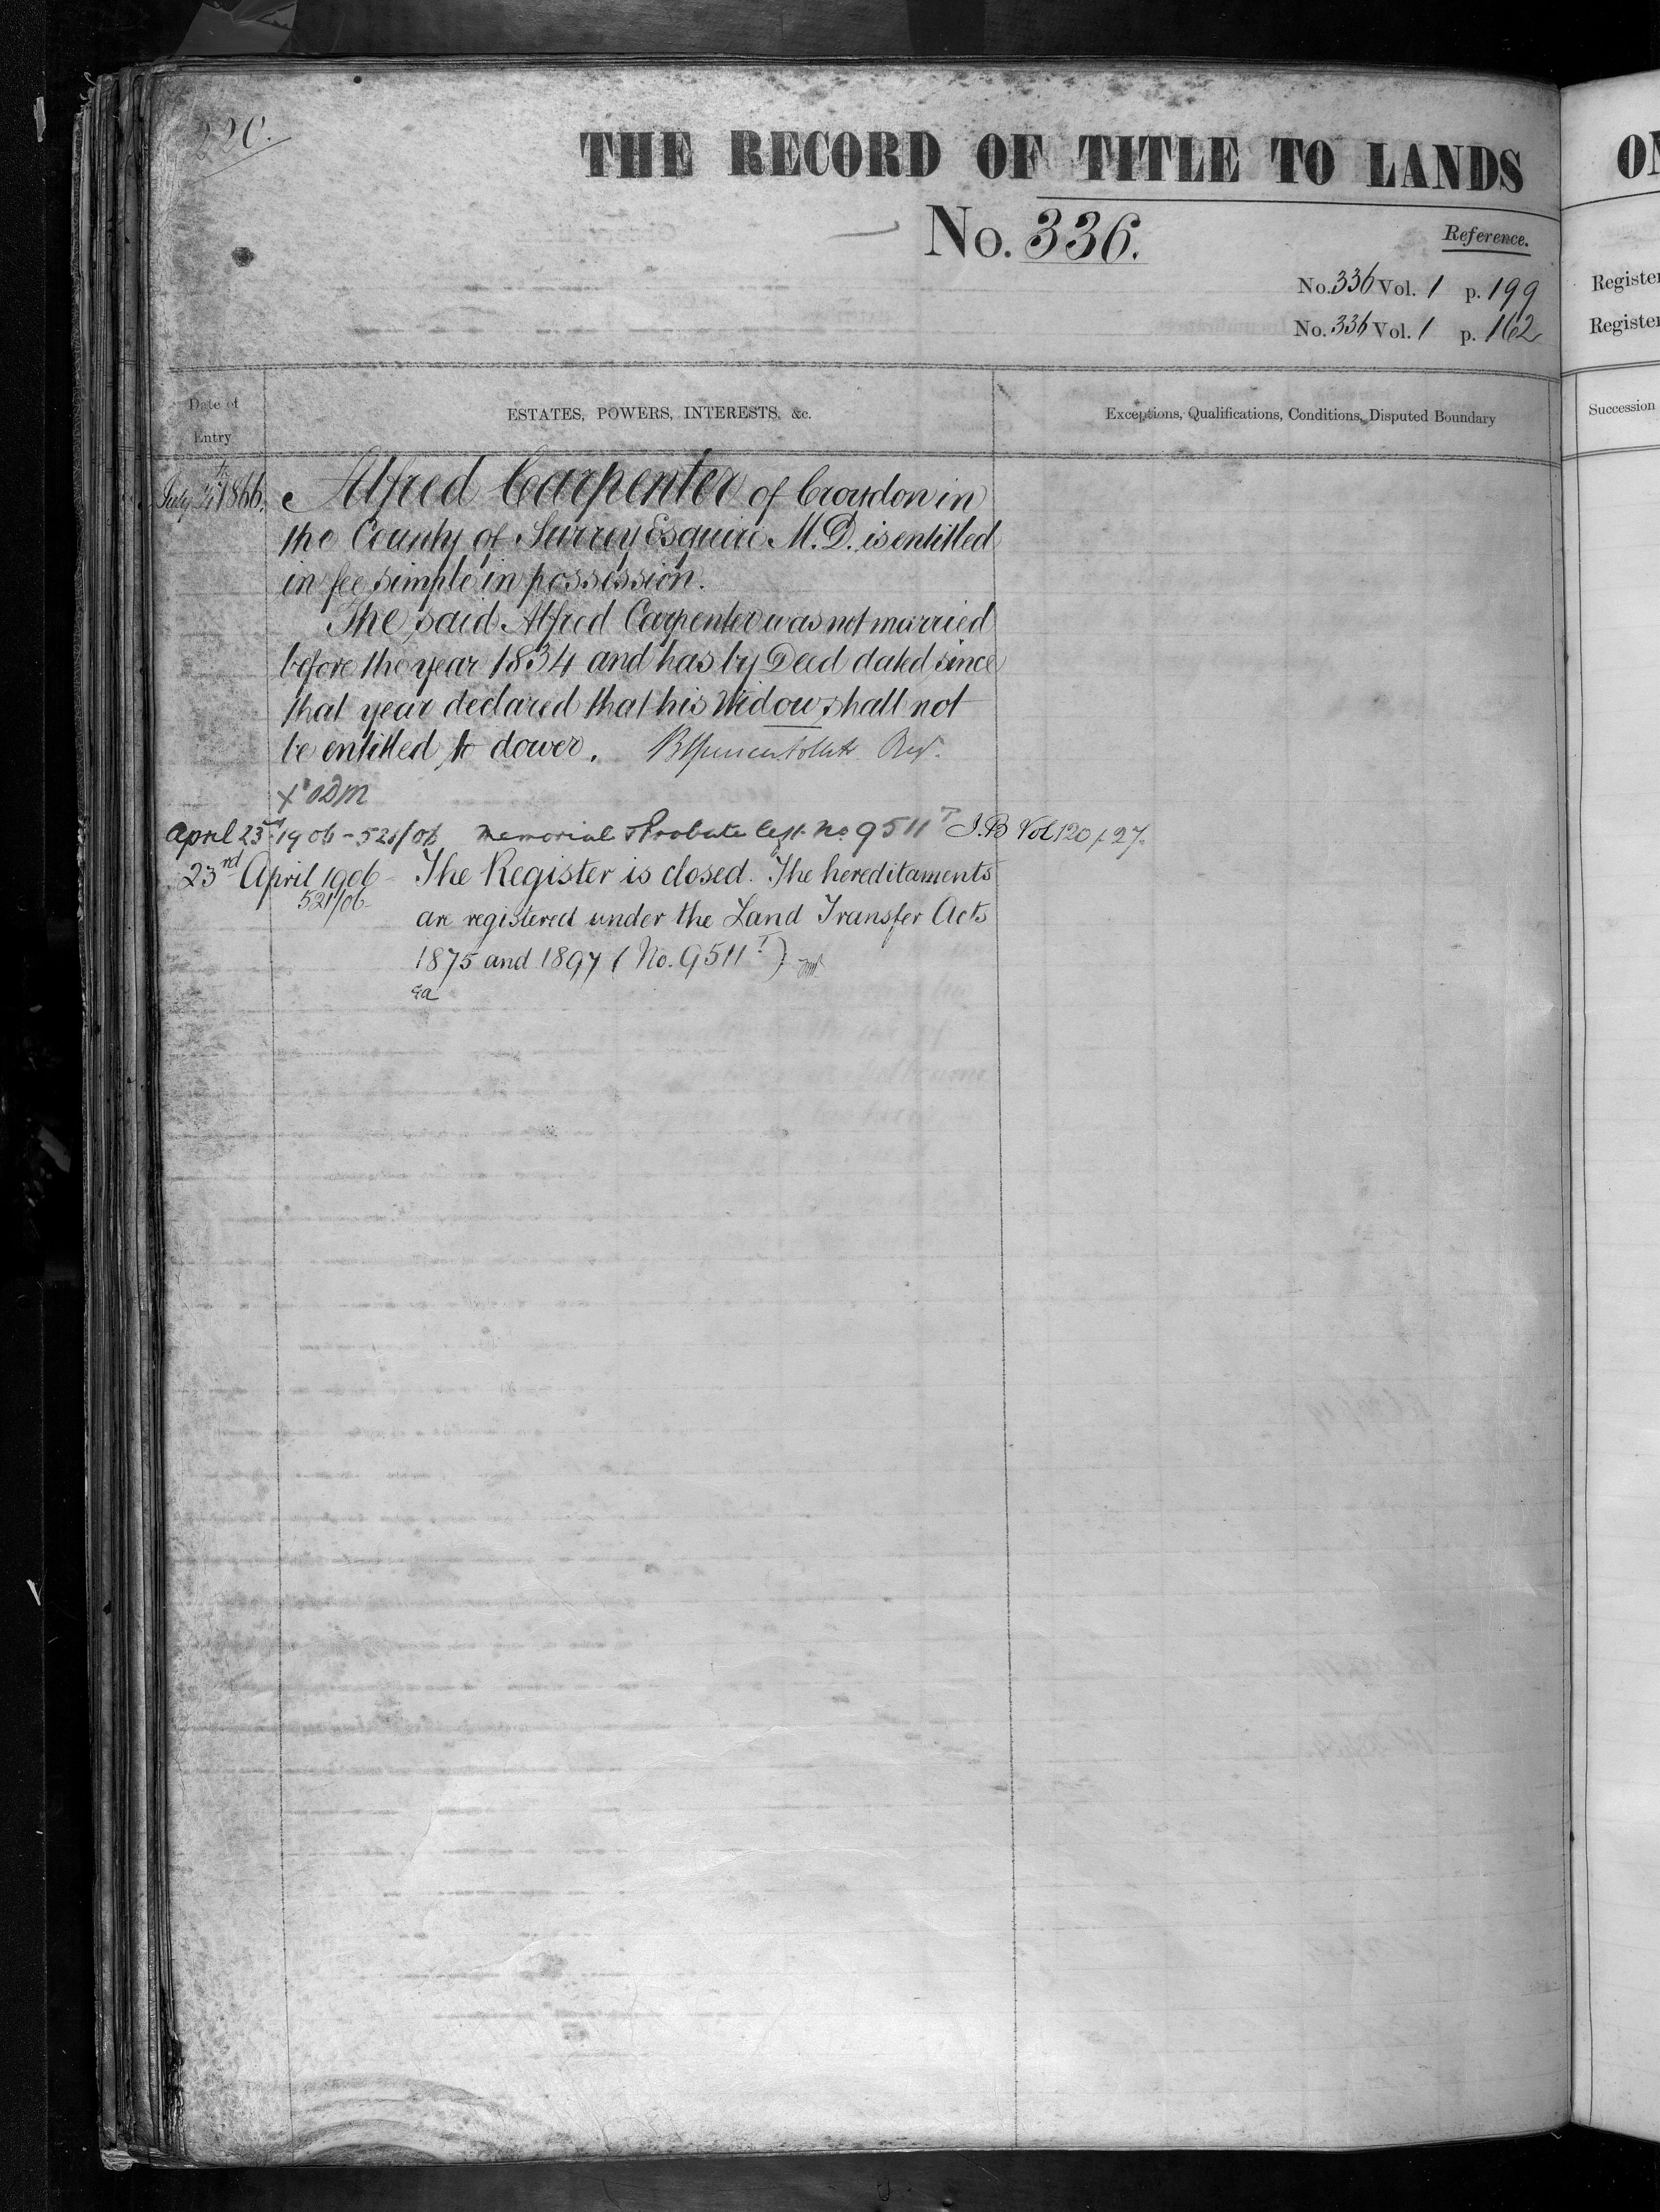 220.
THE RECORD OF TITLE TO LANDS
No. 336.
Reference.
No. 336 Vol. 1 p. 199
No. 336 Vol. 1 p. 162
Date of Entry
ESTATES, POWERS, INTERESTS, &c.
Exceptions, Qualifications, Conditions, Disputed Boundary
July 1866. Alfred Carpenter of Croydon in
the County of Surrey Esquire M.D. is entitled
in fee simple in possession.
The said Alfred Carpenter was not married
before the year 1834 and has by Deed dated since
that year declared that his Widow shall not
be entitled to dower.
April 23rd 1906 - 521/06 Memorial & Probate No 9511 T I.B Vol 120 p 27.
23rd April 1906 The Register is closed. The hereditaments
521/06
are registered under the Land Transfer Acts
1875 and 1897 (No. 9511 T)
Register
Register
Succession